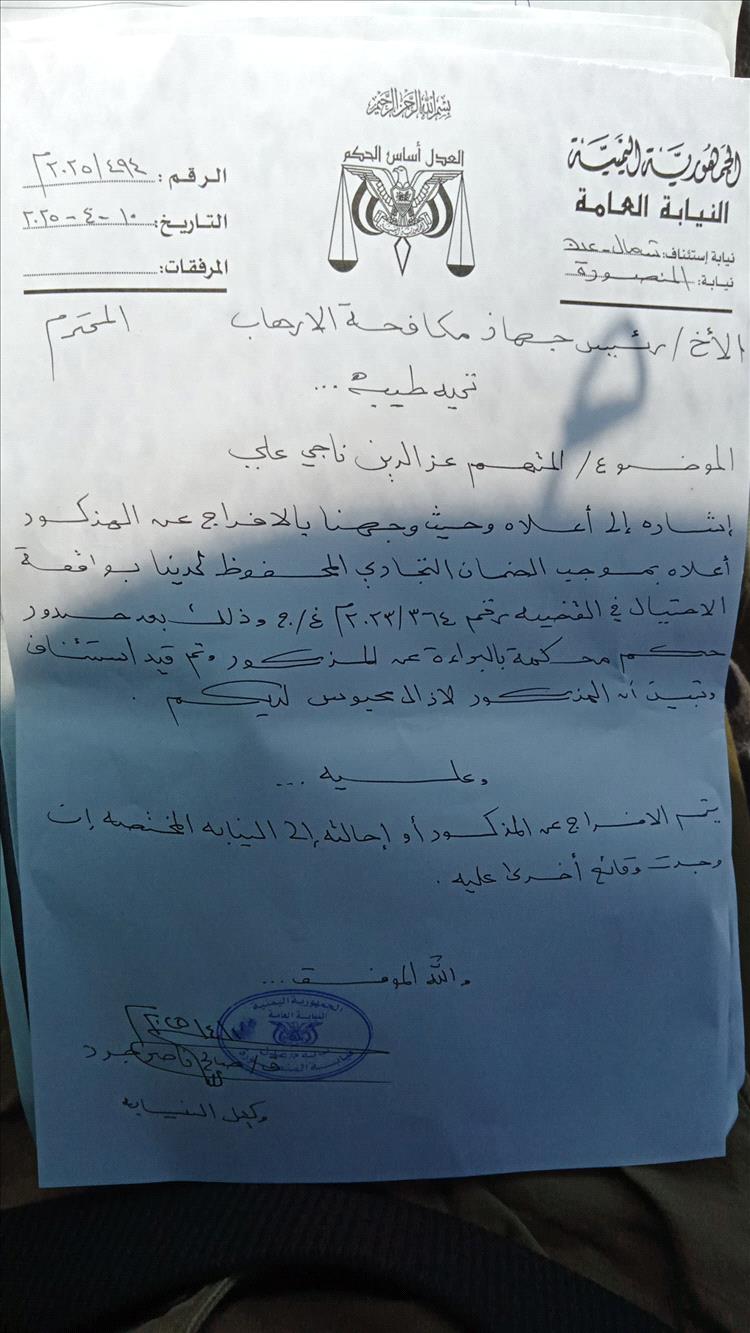 بسم الله الرحمن الرحيم
الجمهورية اليمنية
النيابة العامة
نيابة إستئناف: شمال عدن
نيابة: المنصورة
العدل أساس الحكم
الرقم: ٤٩٤/٢٠٢٥م
التاريخ: ١٠-٤-٢٠٢٥
المرفقات:
الأخ/ رئيس جهاز مكافحة الارهاب المحترم
تحيه طيبه ...
الموضوع/ المتهم عز الدين ناجي علي
إشاره إلى أعلاه وحيث وجهنا بالافراج عن المذكور
أعلاه بموجب الضمان التجاري المحفوظ لدينا بواقعة
الاحتيال في القضيه رقم ٣٦٤/٢٠٢٣م غ/ج وذلك بعد صدور
حكم محكمة بالبراءة عن المذكور وتم قيد استئناف
وتبين أن المذكور لازال محبوس لديكم .
وعليه ...
يتم الافراج عن المذكور أو إحالته إلى النيابه المختصه إن
وجدت وقائع أخرى عليه .
والله الموفق ...
الجمهورية اليمنية
النيابة العامة
ق/ صالح ناصر
وكيل النيابه